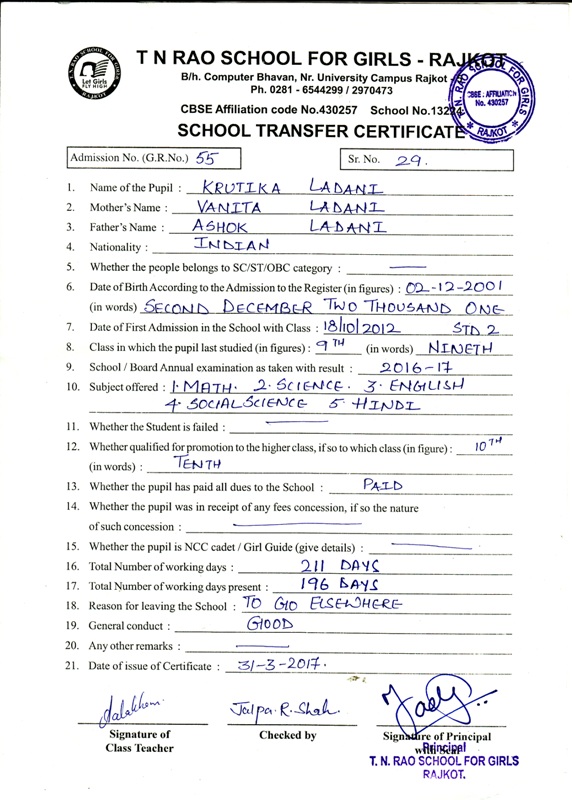 T. N. RAO SCHOOL FOR GIRLS
Let Girls
FLY HIGH
RAJKOT
T N RAO SCHOOL FOR GIRLS - RAJKOT
B/h. Computer Bhavan, Nr. University Campus Rajkot -
Ph. 0281 - 6544299 / 2970473
CBSE Affiliation code No.430257 School No.13224
T. N. RAO SCHOOL FOR GIRLS
CBSE : AFFILIATION
No. 430257
* RAJKOT *
SCHOOL TRANSFER CERTIFICATE
Admission No. (G.R.No.) 55 Sr. No. 29.
1. Name of the Pupil : KRUTIKA LADANI
2. Mother's Name : VANITA LADANI
3. Father's Name : ASHOK LADANI
4. Nationality : INDIAN
5. Whether the people belongs to SC/ST/OBC category : —
6. Date of Birth According to the Admission to the Register (in figures) : 02-12-2001
(in words) SECOND DECEMBER TWO THOUSAND ONE
7. Date of First Admission in the School with Class : 18/10/2012 STD 2
8. Class in which the pupil last studied (in figures) : 9TH (in words) NINETH
9. School / Board Annual examination as taken with result : 2016-17
10. Subject offered : 1. MATH. 2. SCIENCE. 3. ENGLISH
4. SOCIAL SCIENCE 5. HINDI
11. Whether the Student is failed : —
12. Whether qualified for promotion to the higher class, if so to which class (in figure) : 10TH
(in words) : TENTH
13. Whether the pupil has paid all dues to the School : PAID
14. Whether the pupil was in receipt of any fees concession, if so the nature
of such concession : —
15. Whether the pupil is NCC cadet / Girl Guide (give details) : —
16. Total Number of working days : 211 DAYS
17. Total Number of working days present : 196 DAYS
18. Reason for leaving the School : TO GO ELSEWHERE
19. General conduct : GOOD
20. Any other remarks : —
21. Date of issue of Certificate : 31-3-2017.
Jalpa. R. Shah.
Signature of Class Teacher
Checked by
Signature of Principal
with Seal
Principal
T. N. RAO SCHOOL FOR GIRLS
RAJKOT.